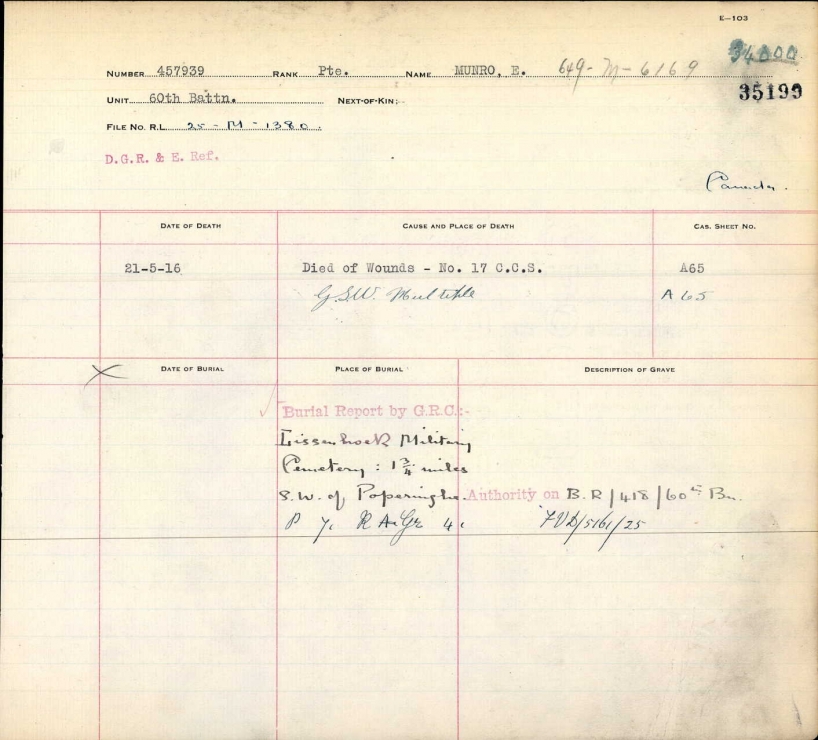 E—103
34000
NUMBER 457939 RANK Pte. NAME MUNRO, E. 649-M-6169
35199
UNIT 60th Battn. NEXT-OF-KIN:-
FILE NO. R.L. 25-M-1380.
D.G.R. & E. Ref.
Canada.
DATE OF DEATH CAUSE AND PLACE OF DEATH CAS. SHEET NO.
21-5-16 Died of Wounds - No. 17 C.C.S. A65
G.S.W. Multiple A65
X DATE OF BURIAL PLACE OF BURIAL DESCRIPTION OF GRAVE
Burial Report by G.R.C.:-
Lissenhoek Military
Cemetery : 1 3/4 miles
S.W. of Poperinghe. Authority on B.R/418/60th Bn.
P 7. R A. Gr 4.